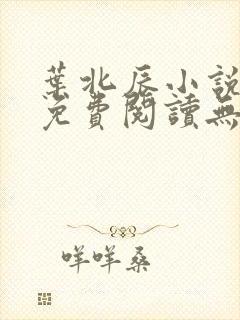 葉北辰小說
免費閱讀無
咩咩桑